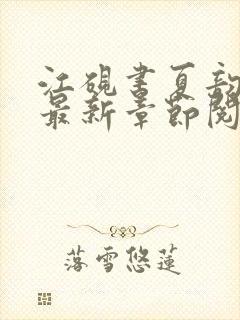 江硯書夏韵
最新章節閱
落雪悠蓮